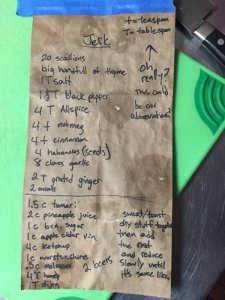 t = teaspoon
T = tablespoon
Jerk
20 scallions
big handfull of thyme
1 T salt
1 ½ T black pepper
4 T Allspice
4 t nutmeg
4 t cinnamon
4 habaneros (seeds)
8 cloves garlic
2 T grated ginger
2 onions
1.5 c tamari
2 c pineapple juice
1 c brn. sugar
1 c apple cider vin
4 c ketchup
1 c worstershire
.5 c molasses
4 T honey
1 T dijon
2 beers
oh
really?
This could
be one
abbreviation?
sweat/toast
dry stuff together
then add
the rest
and reduce
slowly until
it's sauce like